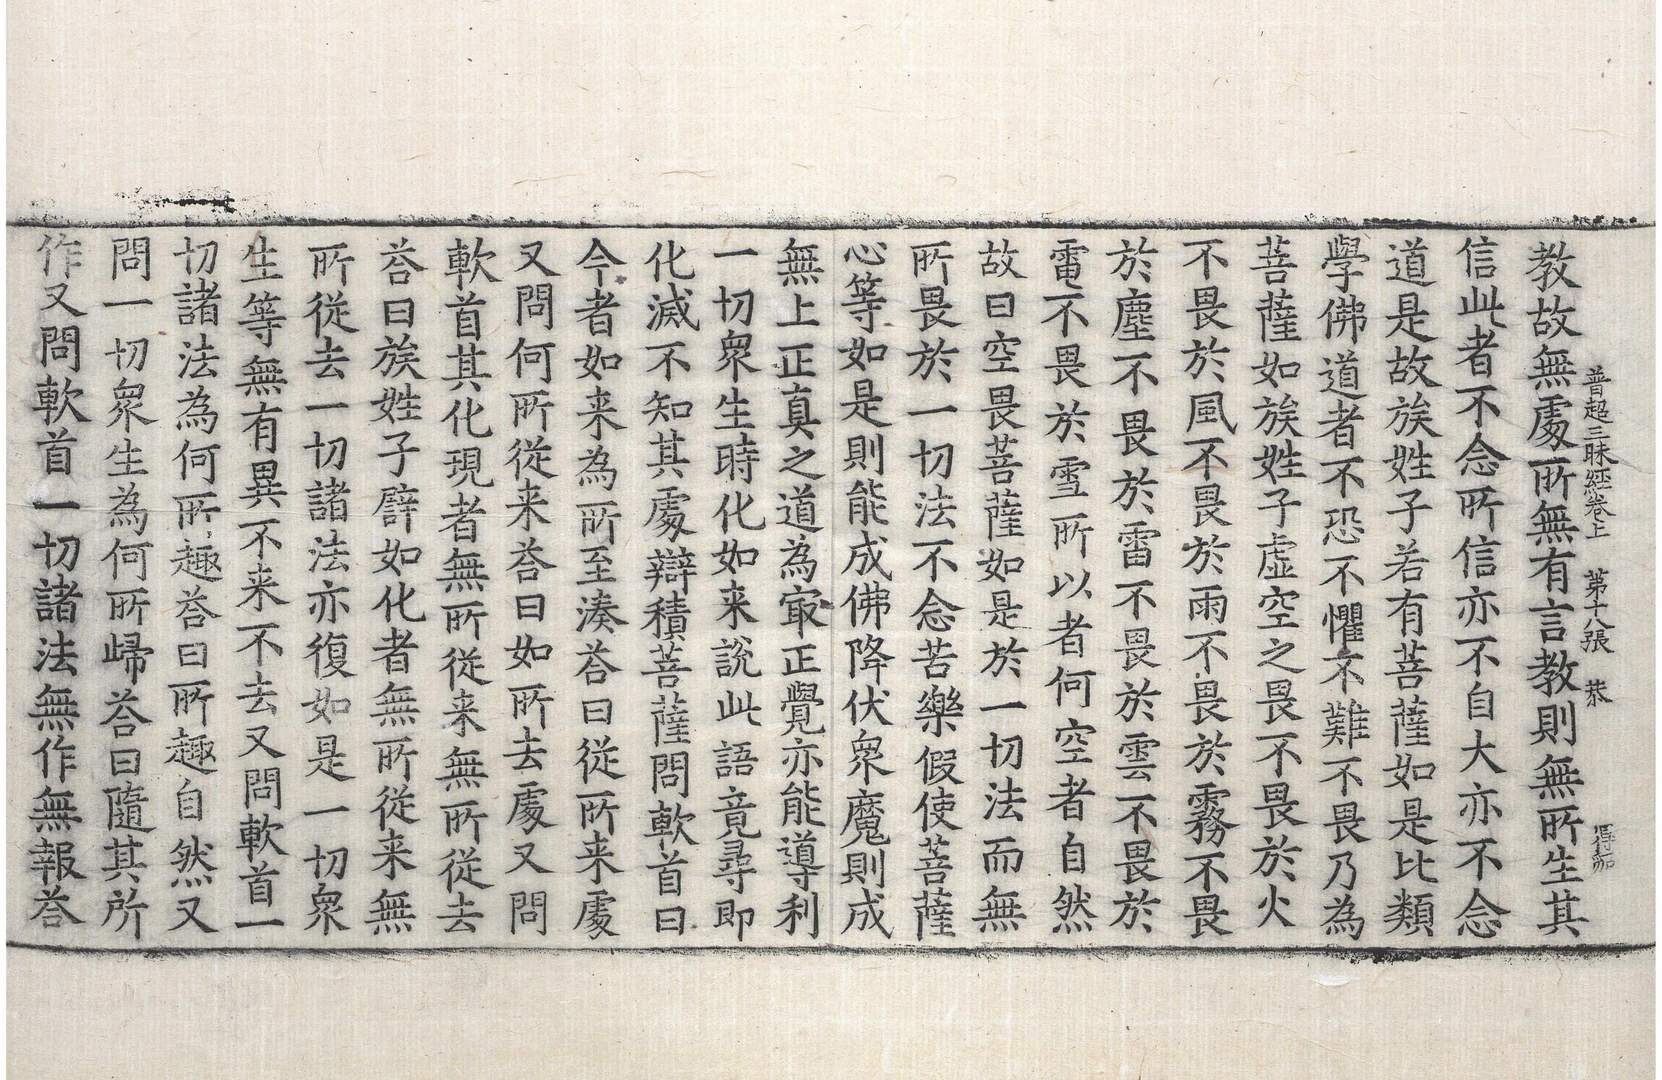 普超三昧經卷上　第十八張　恭
教故無處所無有言教則無所生其
信此者不念所信亦不自大亦不念
道是故族姓子若有菩薩如是比類
學佛道者不恐不懼不難不畏乃為
菩薩如族姓子虛空之畏不畏於火
不畏於風不畏於雨不畏於霧不畏
於塵不畏於雷不畏於雲不畏於
電不畏於雪所以者何空者自然
故曰空畏菩薩如是於一切法而無
所畏於一切法不念苦樂假使菩薩
心等如是則能成佛降伏衆魔則成
無上正真之道為㝡正覺亦能導利
一切衆生時化如来說此語竟尋即
化滅不知其處辯積菩薩問軟首曰
今者如来為所至湊荅曰従所来處
又問何所従来荅曰如所去處又問
軟首其化現者無所従来無所従去
荅曰族姓子譬如化者無所従来無
所従去一切諸法亦復如是一切衆
生等無有異不来不去又問軟首一
切諸法為何所趣荅曰所趣自然又
問一切衆生為何所歸荅曰隨其所
作又問軟首一切諸法無作無報荅